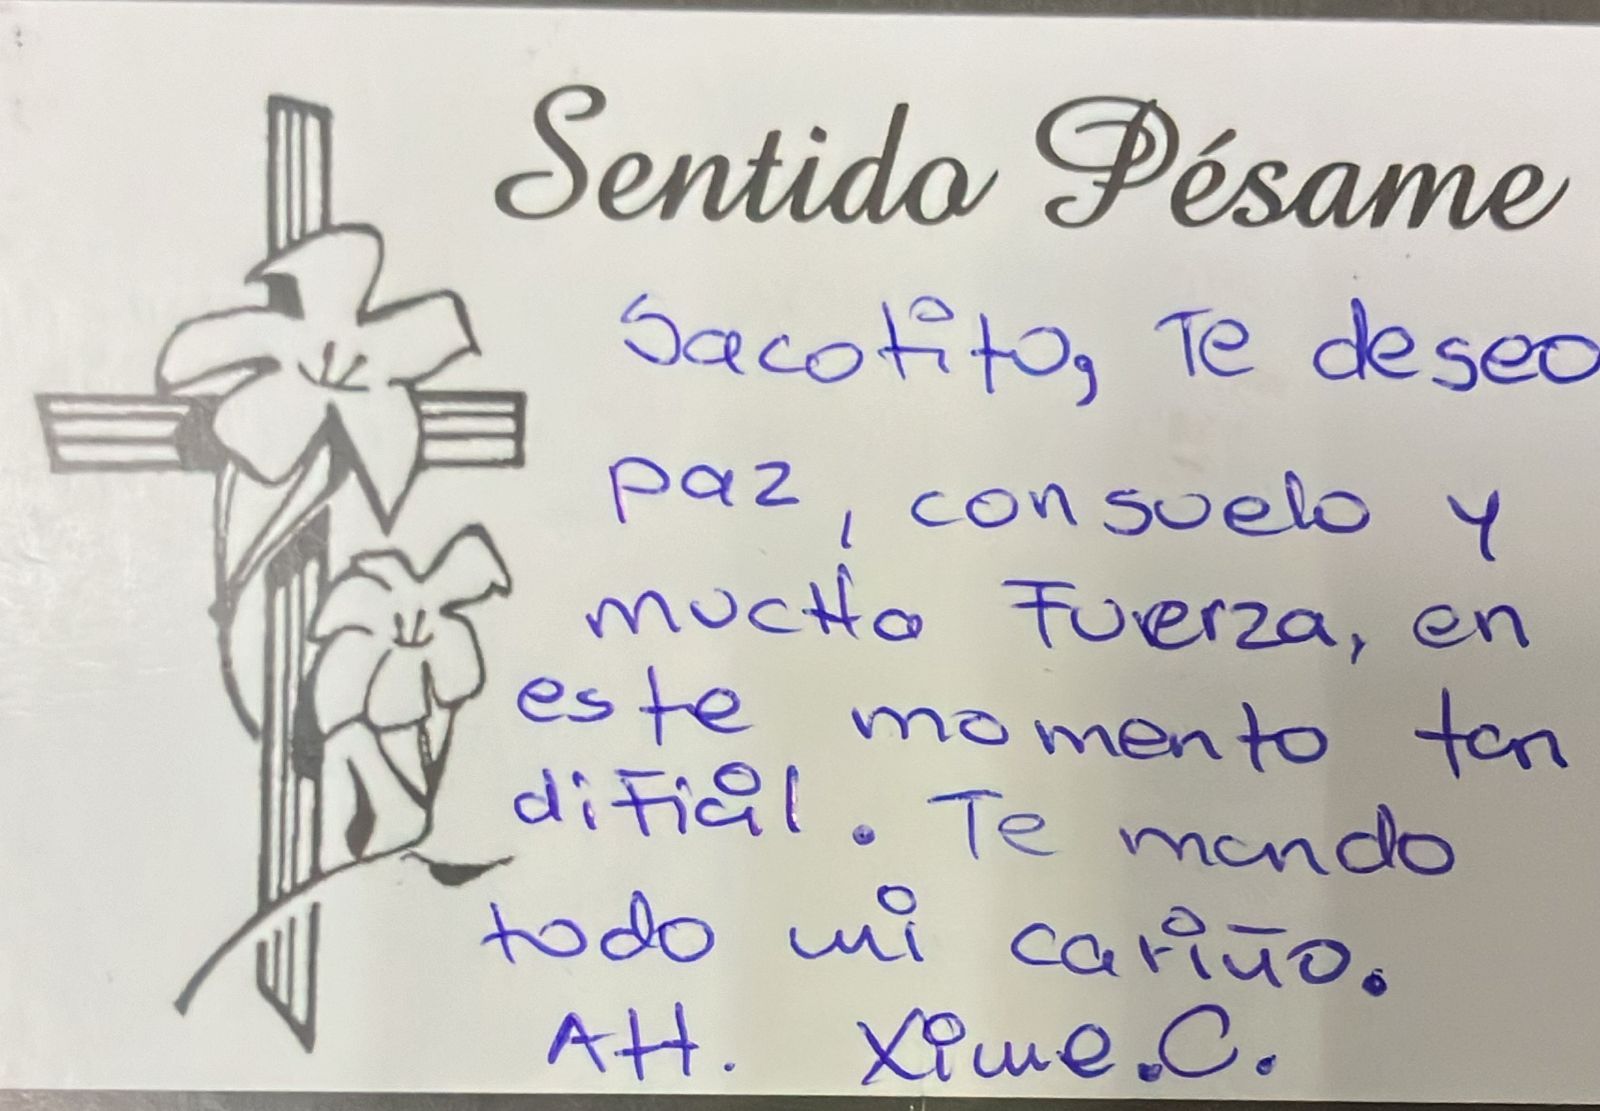 Sentido Pésame
Sacotito, Te deseo
paz, consuelo y
mucha Fuerza, en
este momento tan
difícil. Te mando
todo mi cariño.
Att. Xime.C.